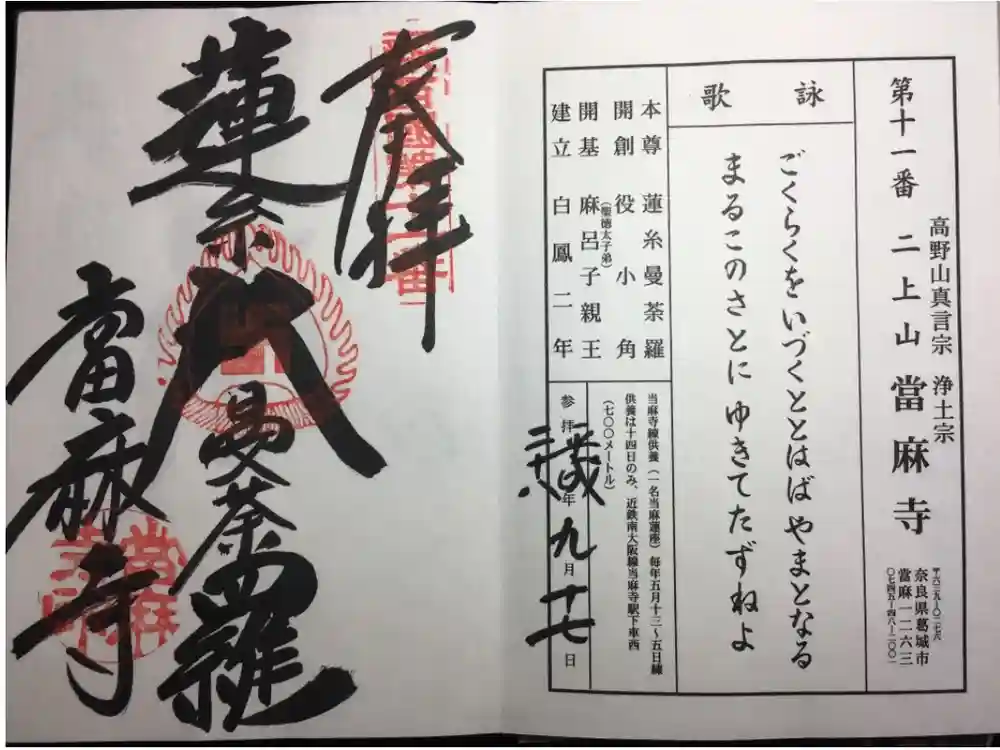 第十一番 二上山 當麻寺
高野山真言宗 浄土宗
〒六三九-〇二七六
奈良県葛城市
當麻一二六三
〇七四五-四八-二〇〇一
詠歌
ごくらくをいづくととはばやまとなる
まるこのさとにゆきてたずねよ
本尊 蓮糸曼荼羅
開創 役小角
(聖徳太子弟)
開基 麻呂子親王
建立 白鳳二年
当麻寺線供養(一名当麻蓮座)毎年五月十三〜五日線
供養は十四日のみ、近鉄南大阪線当麻寺駅下車西
(七〇〇メートル)
参拝 年九月十七日
奉拝
蓮糸大曼荼羅
當麻寺